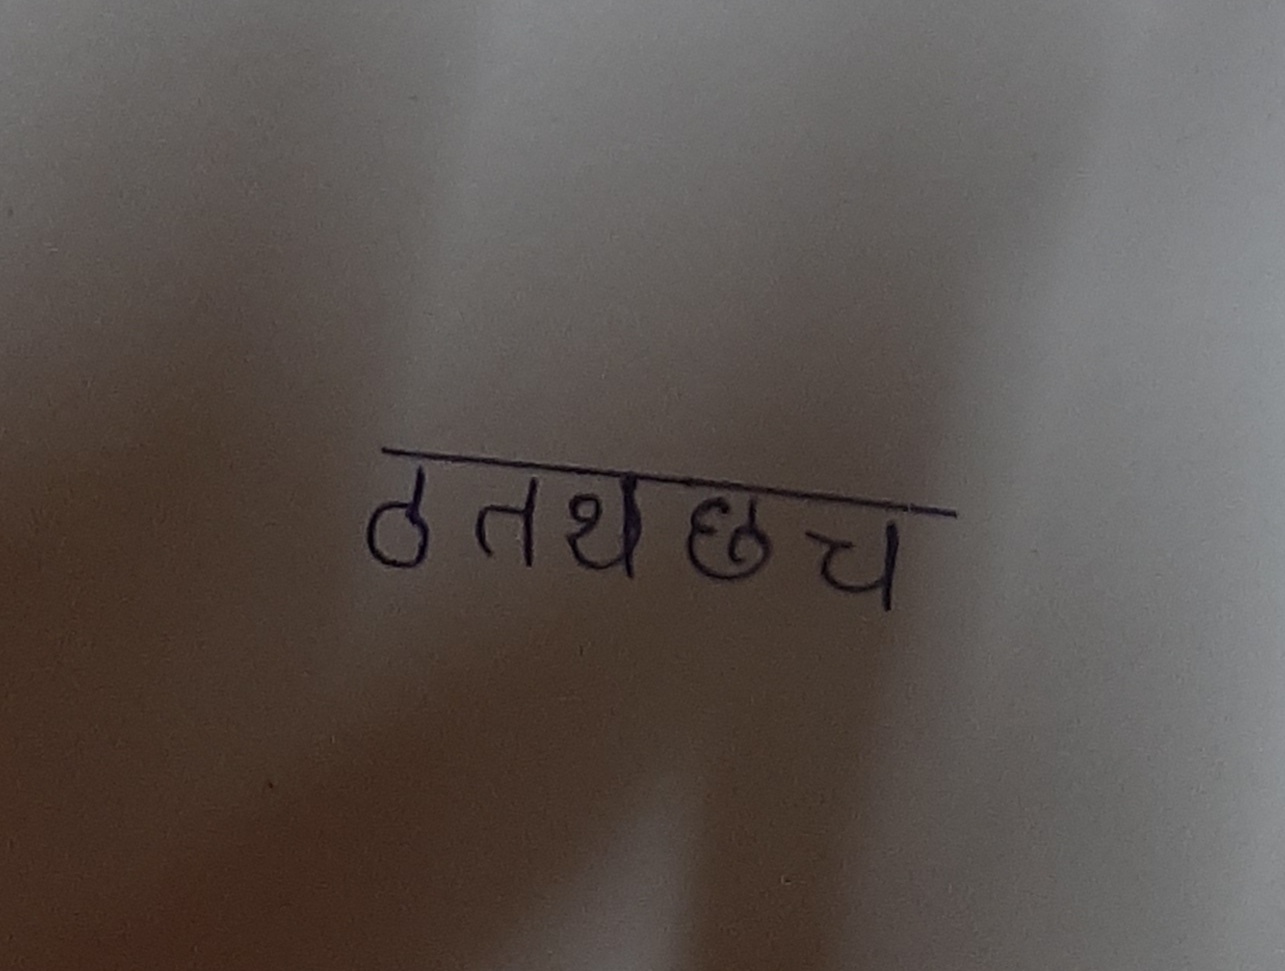 ठतथछच